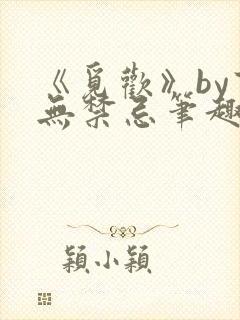 《覓歡》by
無禁忌筆趣
穎小穎